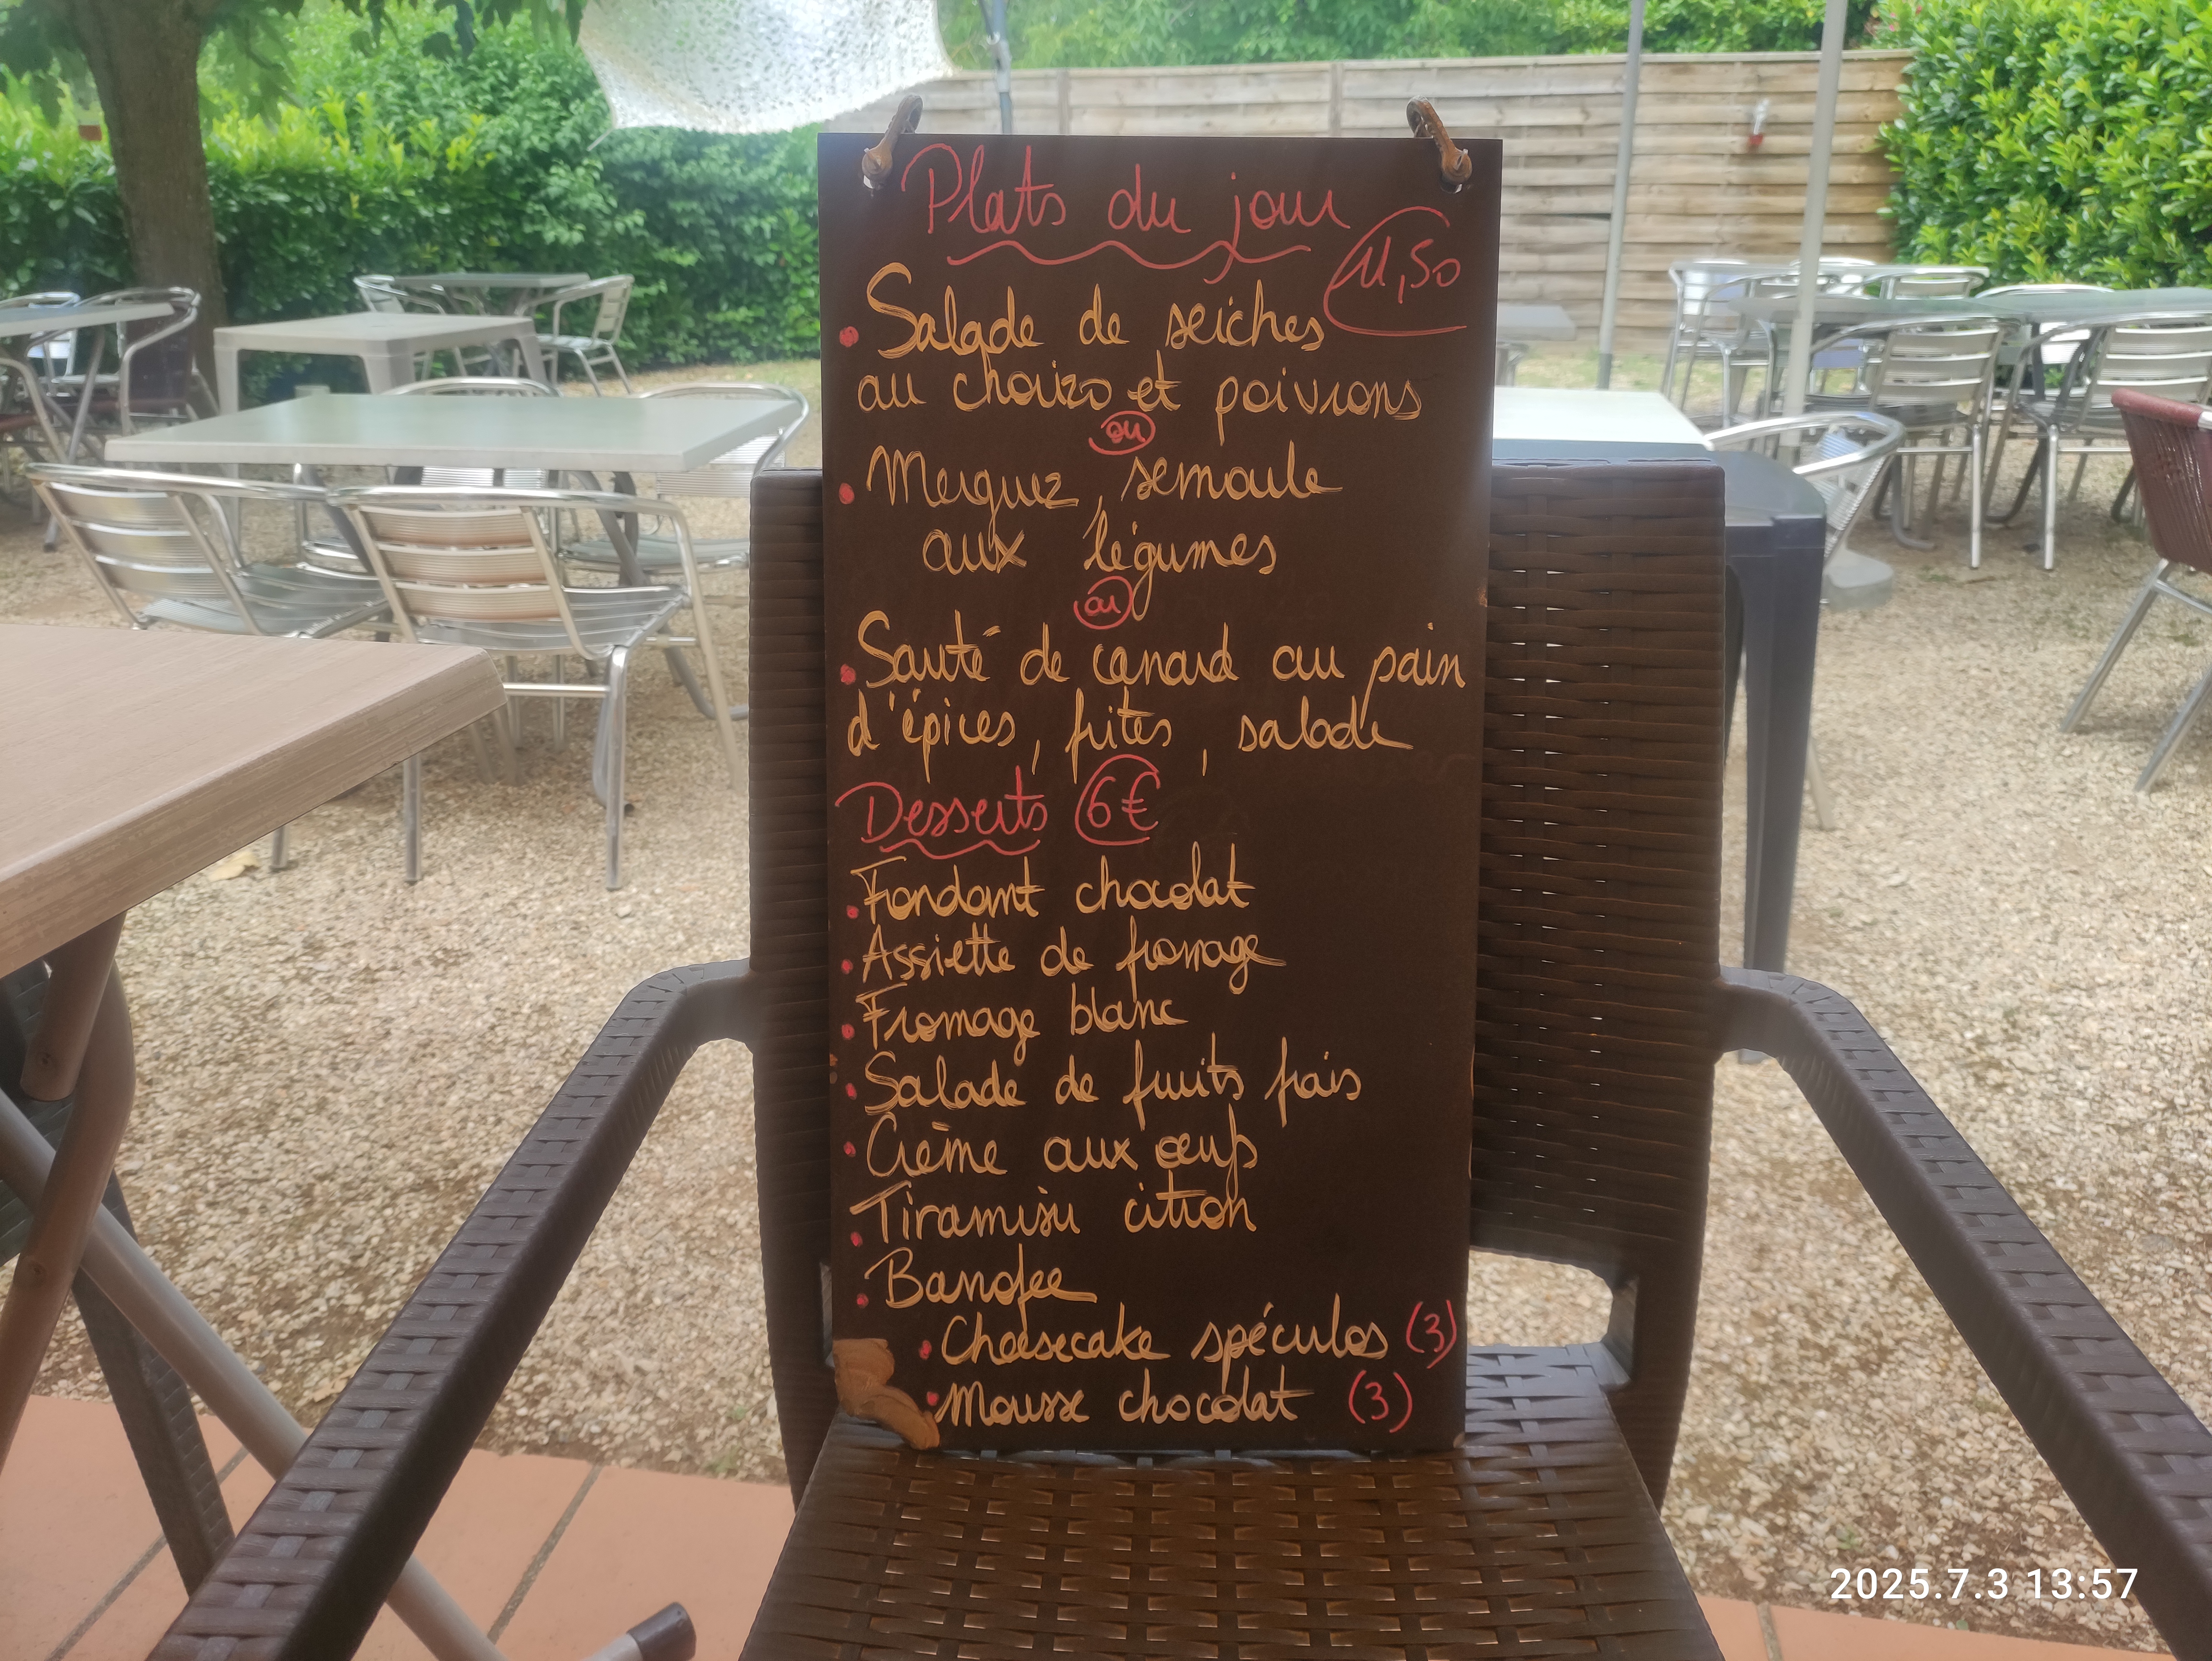 Plats du jour
11,50
• Salade de seiches
au chorizo et poivrons
ou
• Merguez, semoule
aux légumes
ou
• Sauté de canard au pain
d'épices, frites, salade
Desserts 6€
• Fondant chocolat
• Assiette de fromage
• Fromage blanc
• Salade de fruits frais
• Crème aux œufs
• Tiramisu citron
• Banofee
• Cheesecake spéculos (3)
• Mousse chocolat (3)
2025.7.3 13:57